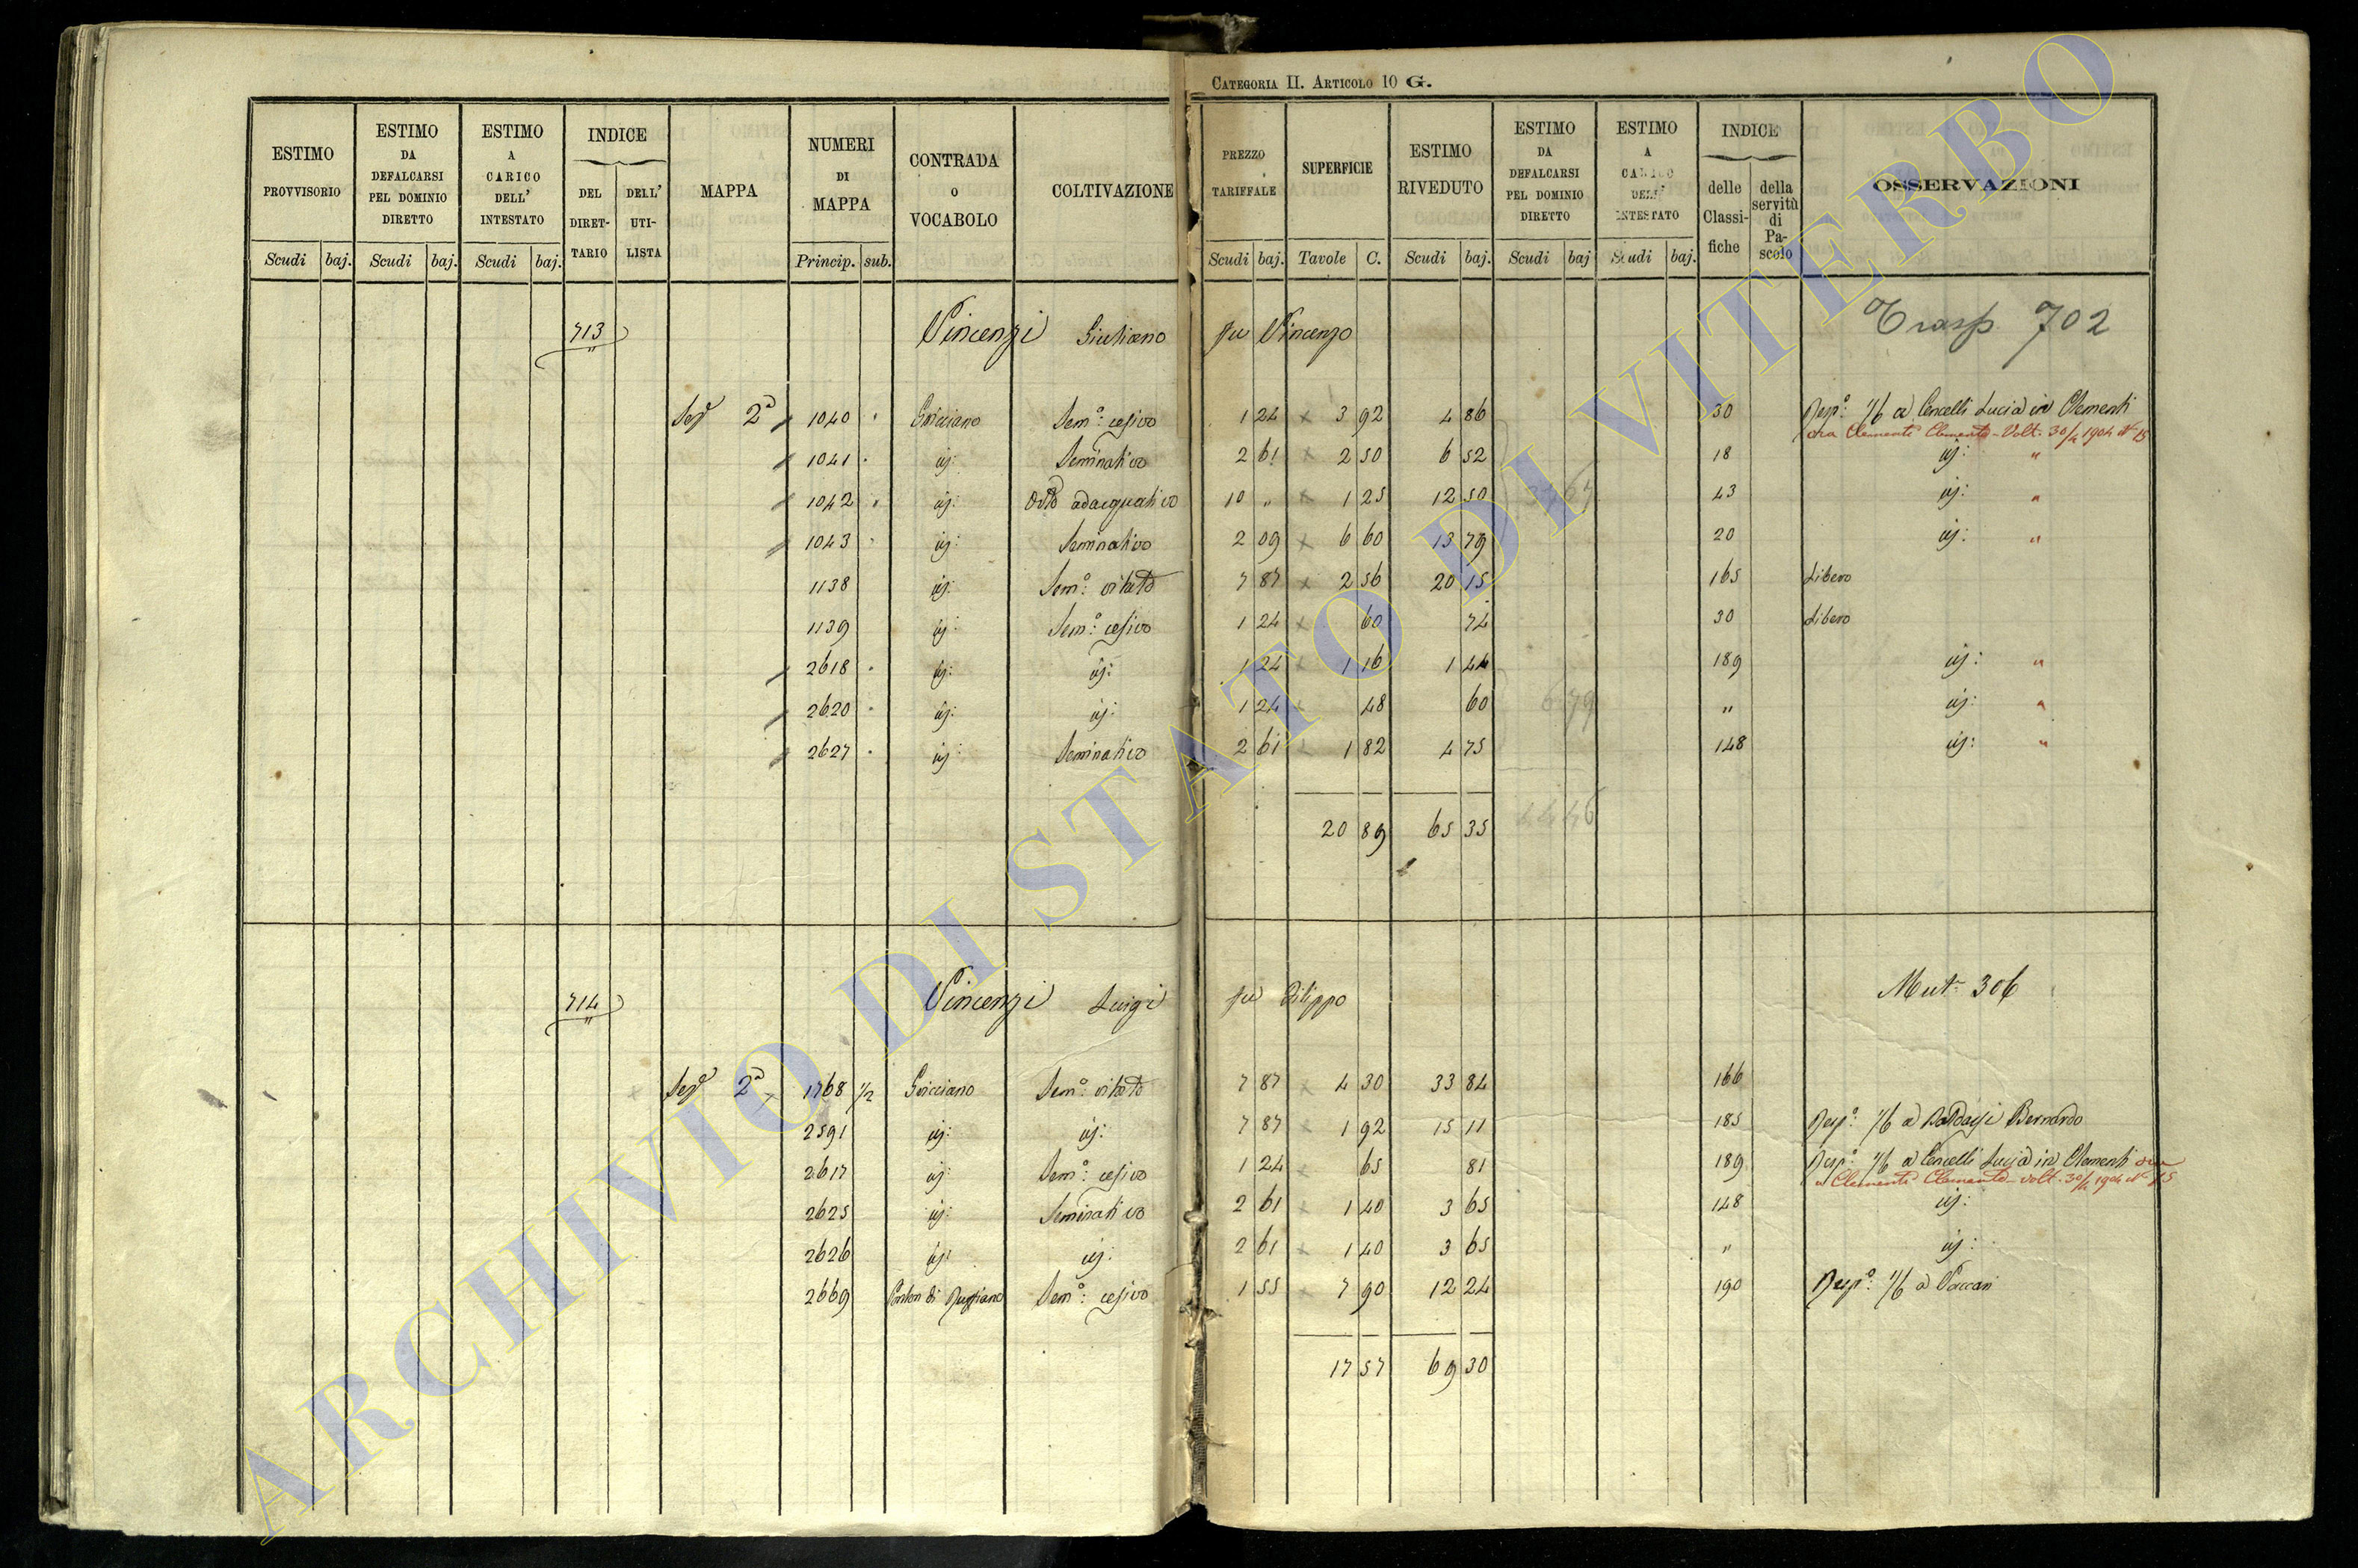 CATEGORIA II. ARTICOLO 10 G.
ESTIMO PROVVISORIO Scudi baj.
ESTIMO DA DEFALCARSI PEL DOMINIO DIRETTO Scudi baj.
ESTIMO A CARICO DELL' INTESTATO Scudi baj.
INDICE DEL DIRETTARIO DELL' UTILISTA
MAPPA
NUMERI DI MAPPA Princip. sub.
CONTRADA O VOCABOLO
COLTIVAZIONE
PREZZO TARIFFALE Scudi baj.
SUPERFICIE Tavole C.
ESTIMO RIVEDUTO Scudi baj.
ESTIMO DA DEFALCARSI PEL DOMINIO DIRETTO Scudi baj
ESTIMO A CARICO DELL' INTESTATO Scudi baj.
INDICE delle Classifiche della servitù di Pascolo
OSSERVAZIONI
713 Vincenzi Giuliano fu Vincenzo Trasp 702
Sez 2a 1040 Gricciano Sem.o: cesivo 1 24 3 92 4 86 30 Resp.o: 1/6 a Cencelli Lucia in Clementi
ora Clementi Clemente - Volt. 30/4 1904 No 15
1041 id: Seminativo 2 61 2 50 6 52 18 id: "
1042 id: Orto adacquativo 10 " 1 25 12 50 43 id: "
1043 id: Seminativo 2 09 6 60 13 79 20 id: "
1138 id: Sem.o: vitato 7 87 2 56 20 15 165 Libero
1139 id: Sem.o: cesivo 1 24 60 74 30 Libero
2618 id: id: 1 24 1 16 1 44 189 id: "
2620 id: id: 1 24 48 60 " id: "
2627 id: Seminativo 2 61 1 82 4 75 148 id: "
20 89 65 35
714 Vincenzi Luigi fu Filippo Mut. 306
Sez 2a 1768 1/2 Gricciano Sem.o: vitato 7 87 4 30 33 84 166
2591 id: id: 7 87 1 92 15 11 185 Resp.o: 1/6 a Baldassi Bernardo
2617 id: Sem.o: cesivo 1 24 65 81 189 Resp.o: 1/6 a Cencelli Lucia in Clementi ora
a Clementi Clemente - Volt. 30/4 1904 No 15
2625 id: Seminativo 2 61 1 40 3 65 148 id:
2626 id: id: 2 61 1 40 3 65 " id:
2669 di Sem.o: cesivo 1 55 7 90 12 24 190 Resp.o: 1/6 a Vaccari
17 57 69 30
ARCHIVIO DI STATO DI VITERBO